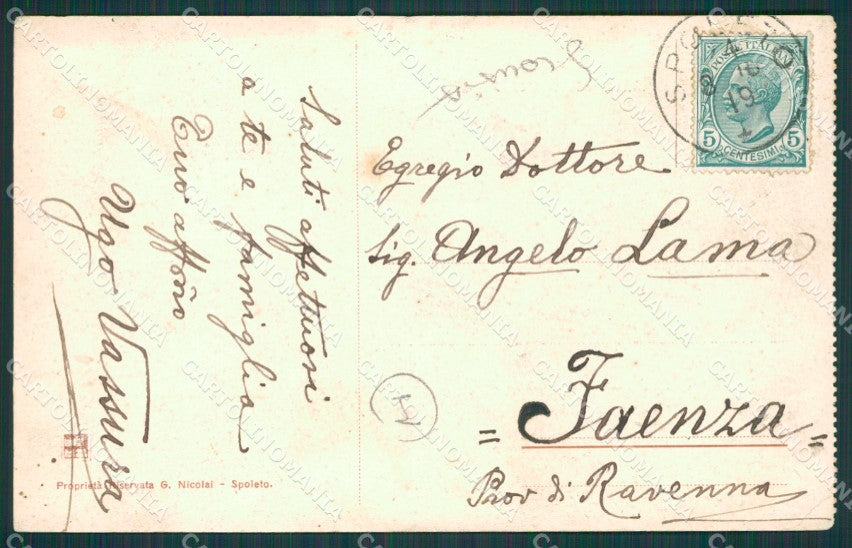 Saluti affettuosi
a te e famiglia
Tuo affmo
Ugo Vassura
Proprietà Riservata G. Nicolai - Spoleto.
SPOLETO
POSTE ITALIANE
5 5
CENTESIMI
Egregio Dottore
Sig. Angelo Lama
= Faenza =
Prov di Ravenna
CARTOLINOMANIA